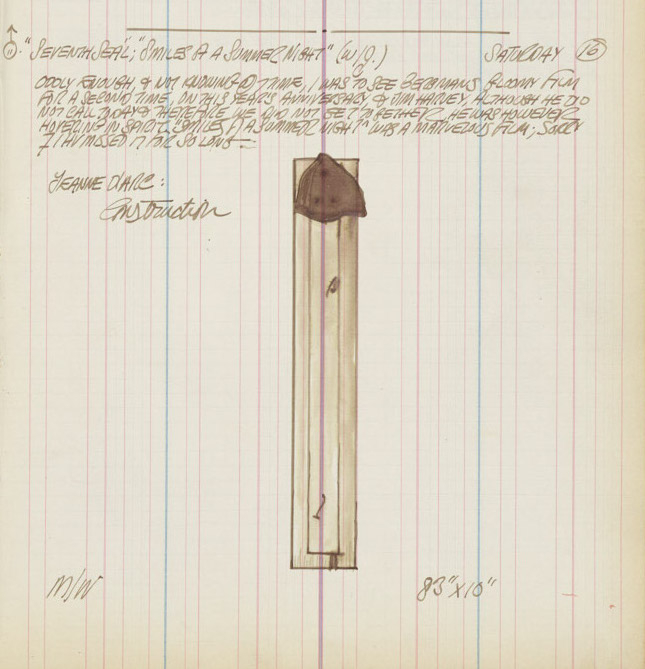 "SEVENTH SEAL"; "SMILES OF A SUMMER NIGHT" (W/J.) SATURDAY 16
ODDLY ENOUGH, & NOT KNOWING @ TIME, I WAS TO SEE BERGMANS GLOOMY FILM
FOR A SECOND TIME, ON THIS YEAR'S ANNIVERSARY, & JIM HARVEY, ALTHOUGH HE DID
NOT CALL TODAY & THEREFORE WE DID NOT GET TOGETHER, HE WAS HOWEVER
HOVERING IN SPIRIT. "SMILES OF A SUMMER NIGHT" WAS A MARVELOUS FILM; SORRY
I HV MISSED IT FOR SO LONG —
JEANNE D'ARC:
Construction
M/W 83" x 10"